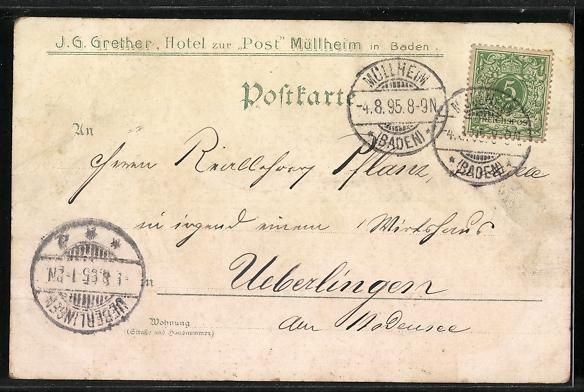 J. G. Grether, Hotel zur „Post" Müllheim in Baden.
5
REICHSPOST
MÜLLHEIM
-4.8.95.8-9N
*(BADEN)*
MÜLLHEIM
-4.8.95.8-9N
*(BADEN)*
Postkarte
An
Herrn Reallehrer Pflanz,
in irgend einem Wirthshaus
in Ueberlingen
am Bodensee
UEBERLINGEN
Wohnung
(Straße und Hausnummer)